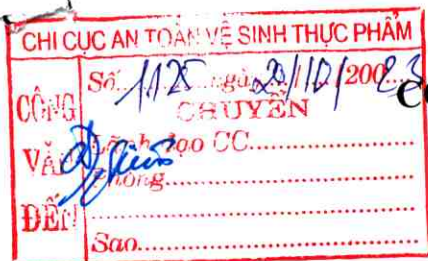 CHI CỤC AN TOÀN VỆ SINH THỰC PHẨM
CÔNG VĂN ĐẾN
Số 1125 ngày 20/10/2023
CHUYỂN
Lãnh đạo CC
Phòng
Sao